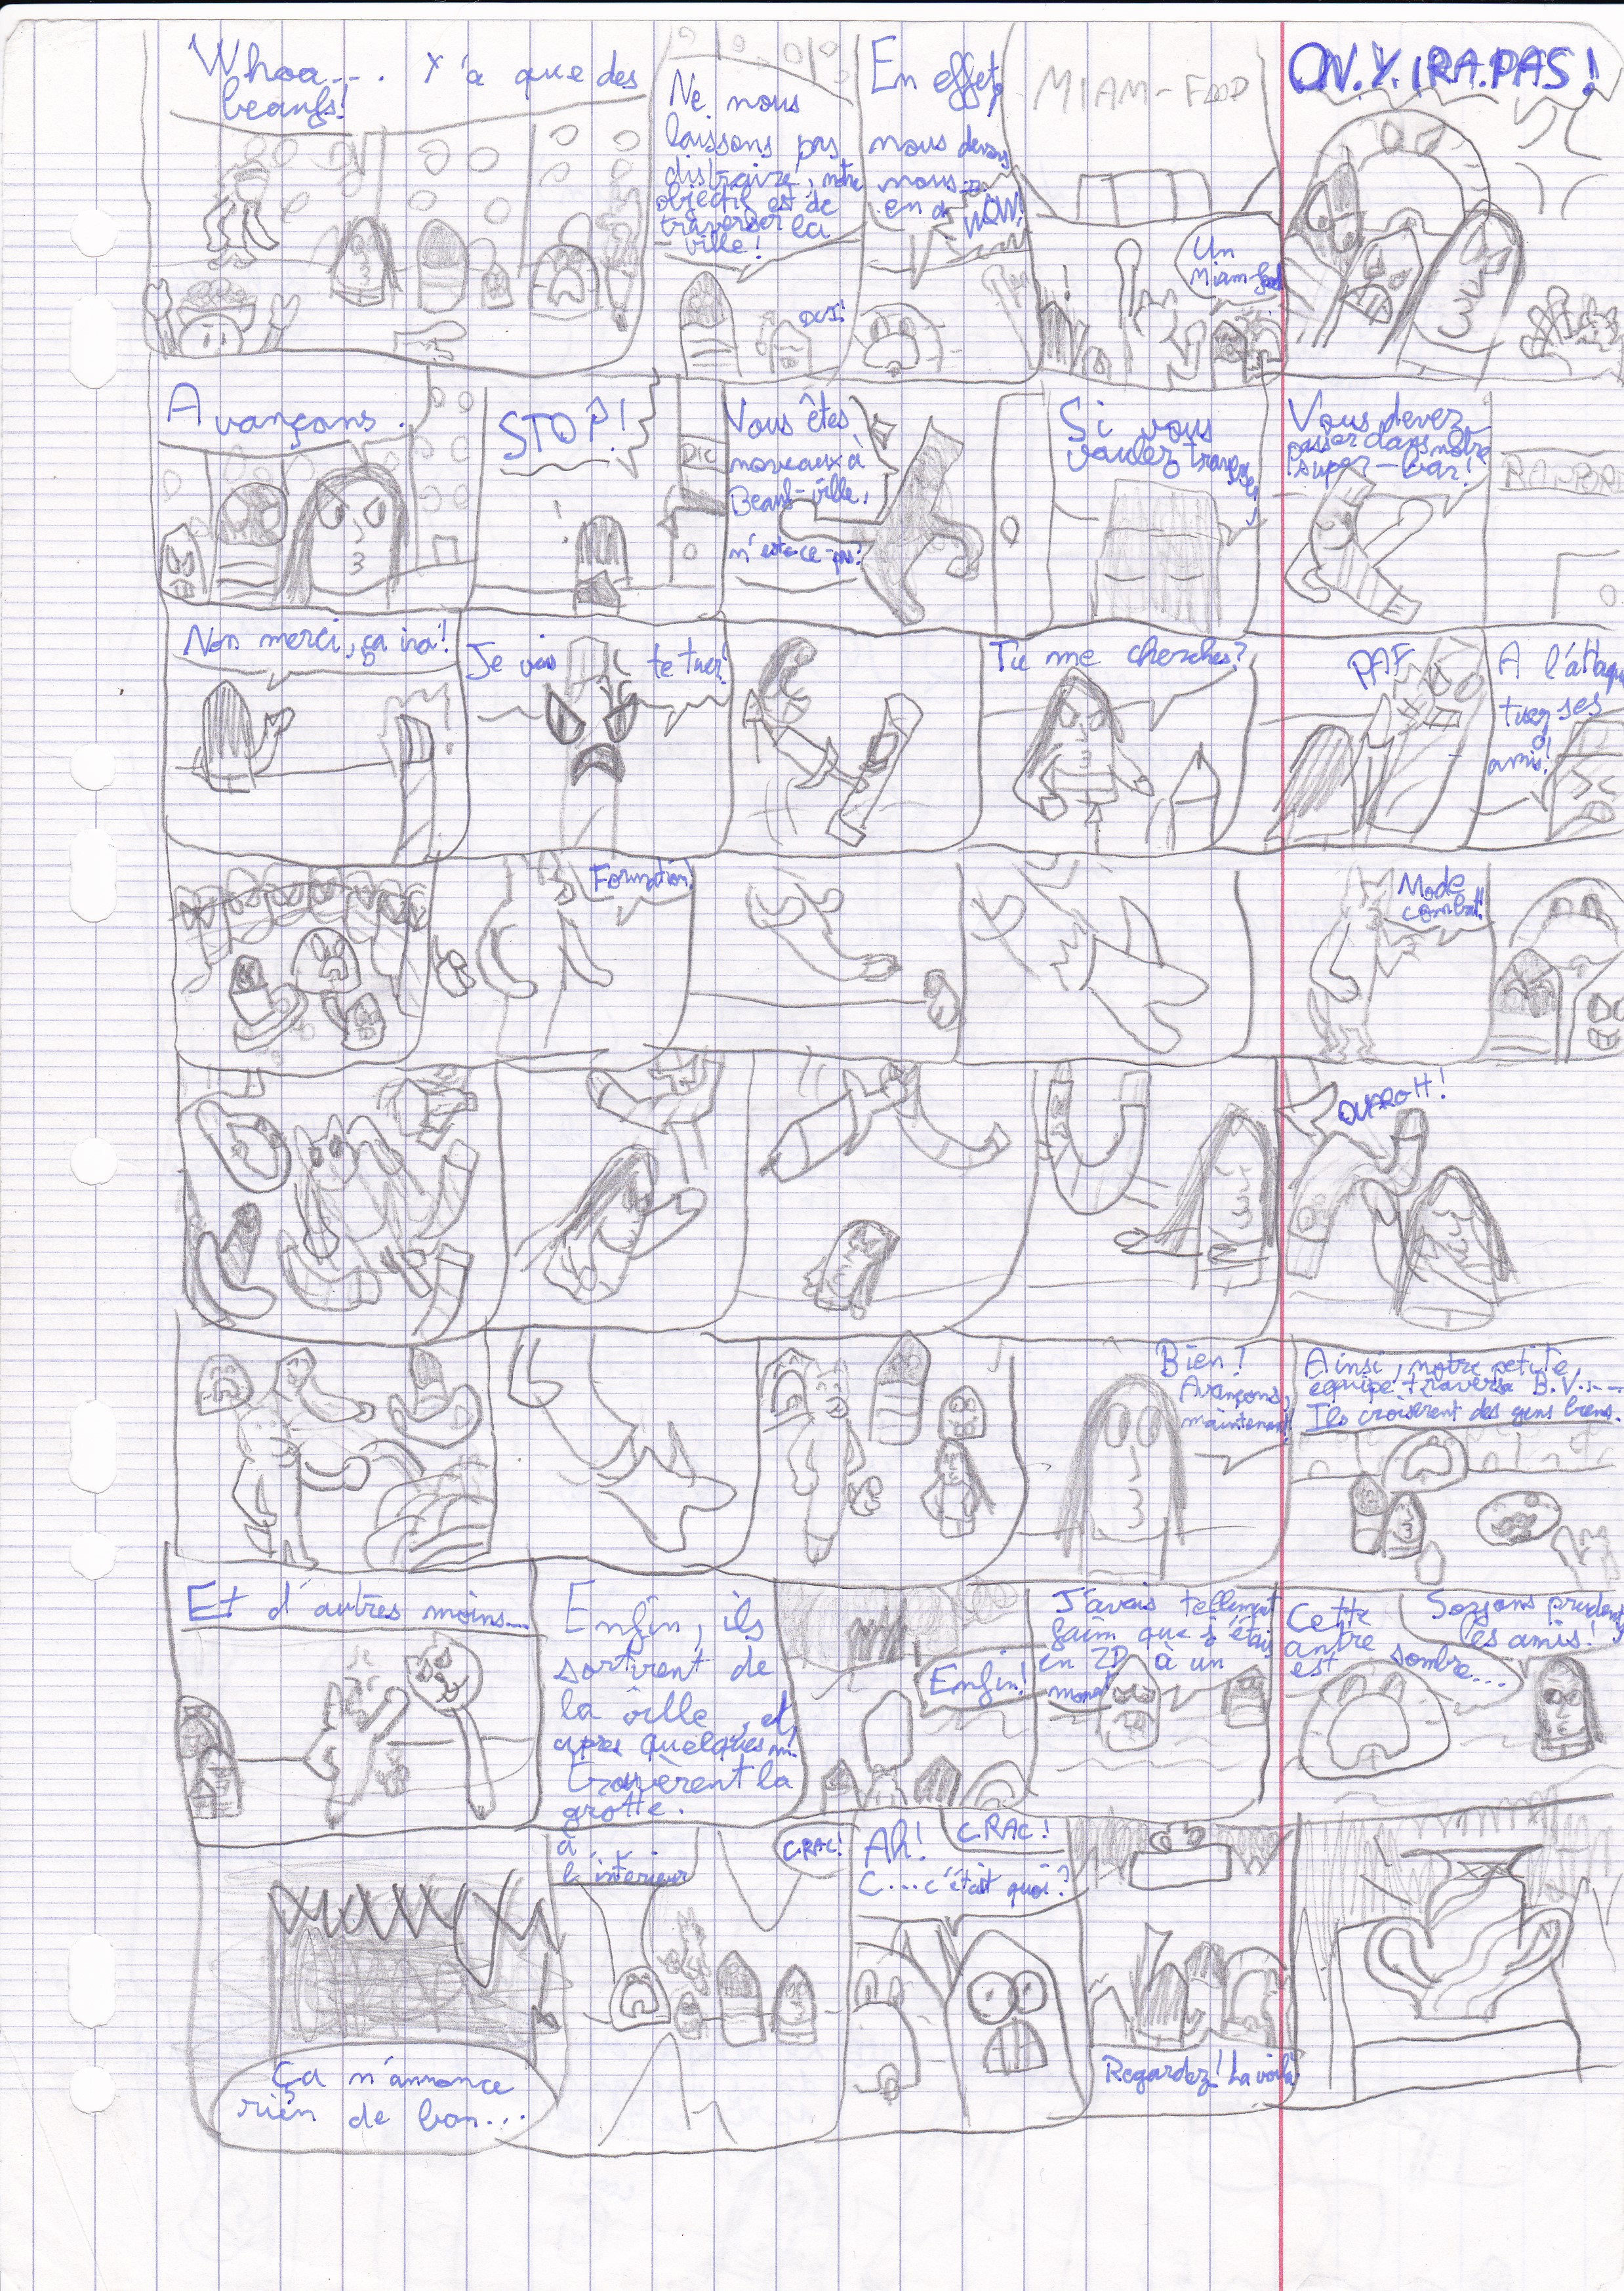 Whoa... Y'a que des
beaufs!
Ne nous
laissons pas
distraire, notre
objectif est de
traverser la
ville!
OUI!
En effet,
nous devons
nous
en d
WOW!
MIAM-FOOD
Un
Miam-food
ON.Y.IRA.PAS!
Avançons.
STOP!
Vous êtes
nouveaux à
Beauf-ville,
n'est-ce-pas?
Si vous
voulez
Vous devez
passer dans notre
super-bar!
Non merci, ça ira!
Je vais te tuer!
Tu me cherches?
PAF
A l'attaque
tuez ses
amis!
Formation
Mode
combat!
OUAROH!
Bien!
Avançons,
maintenant!
Ainsi, notre petite
équipe traversa B.V...
Ils croisèrent des gens biens.
Et d'autres moins...
Enfin, ils
sortirent de
la ville, et
après quelques
trouvèrent la
grotte.
Enfin!
J'avais tellement
faim que j'étais
en 2D à un
moment
Cette
antre
est sombre...
Soyons prudents,
les amis!
Ça n'annonce
rien de bon...
à
l'intérieur
CRAC!
Ah!
C...c'était quoi?
CRAC!
Regardez! La voilà